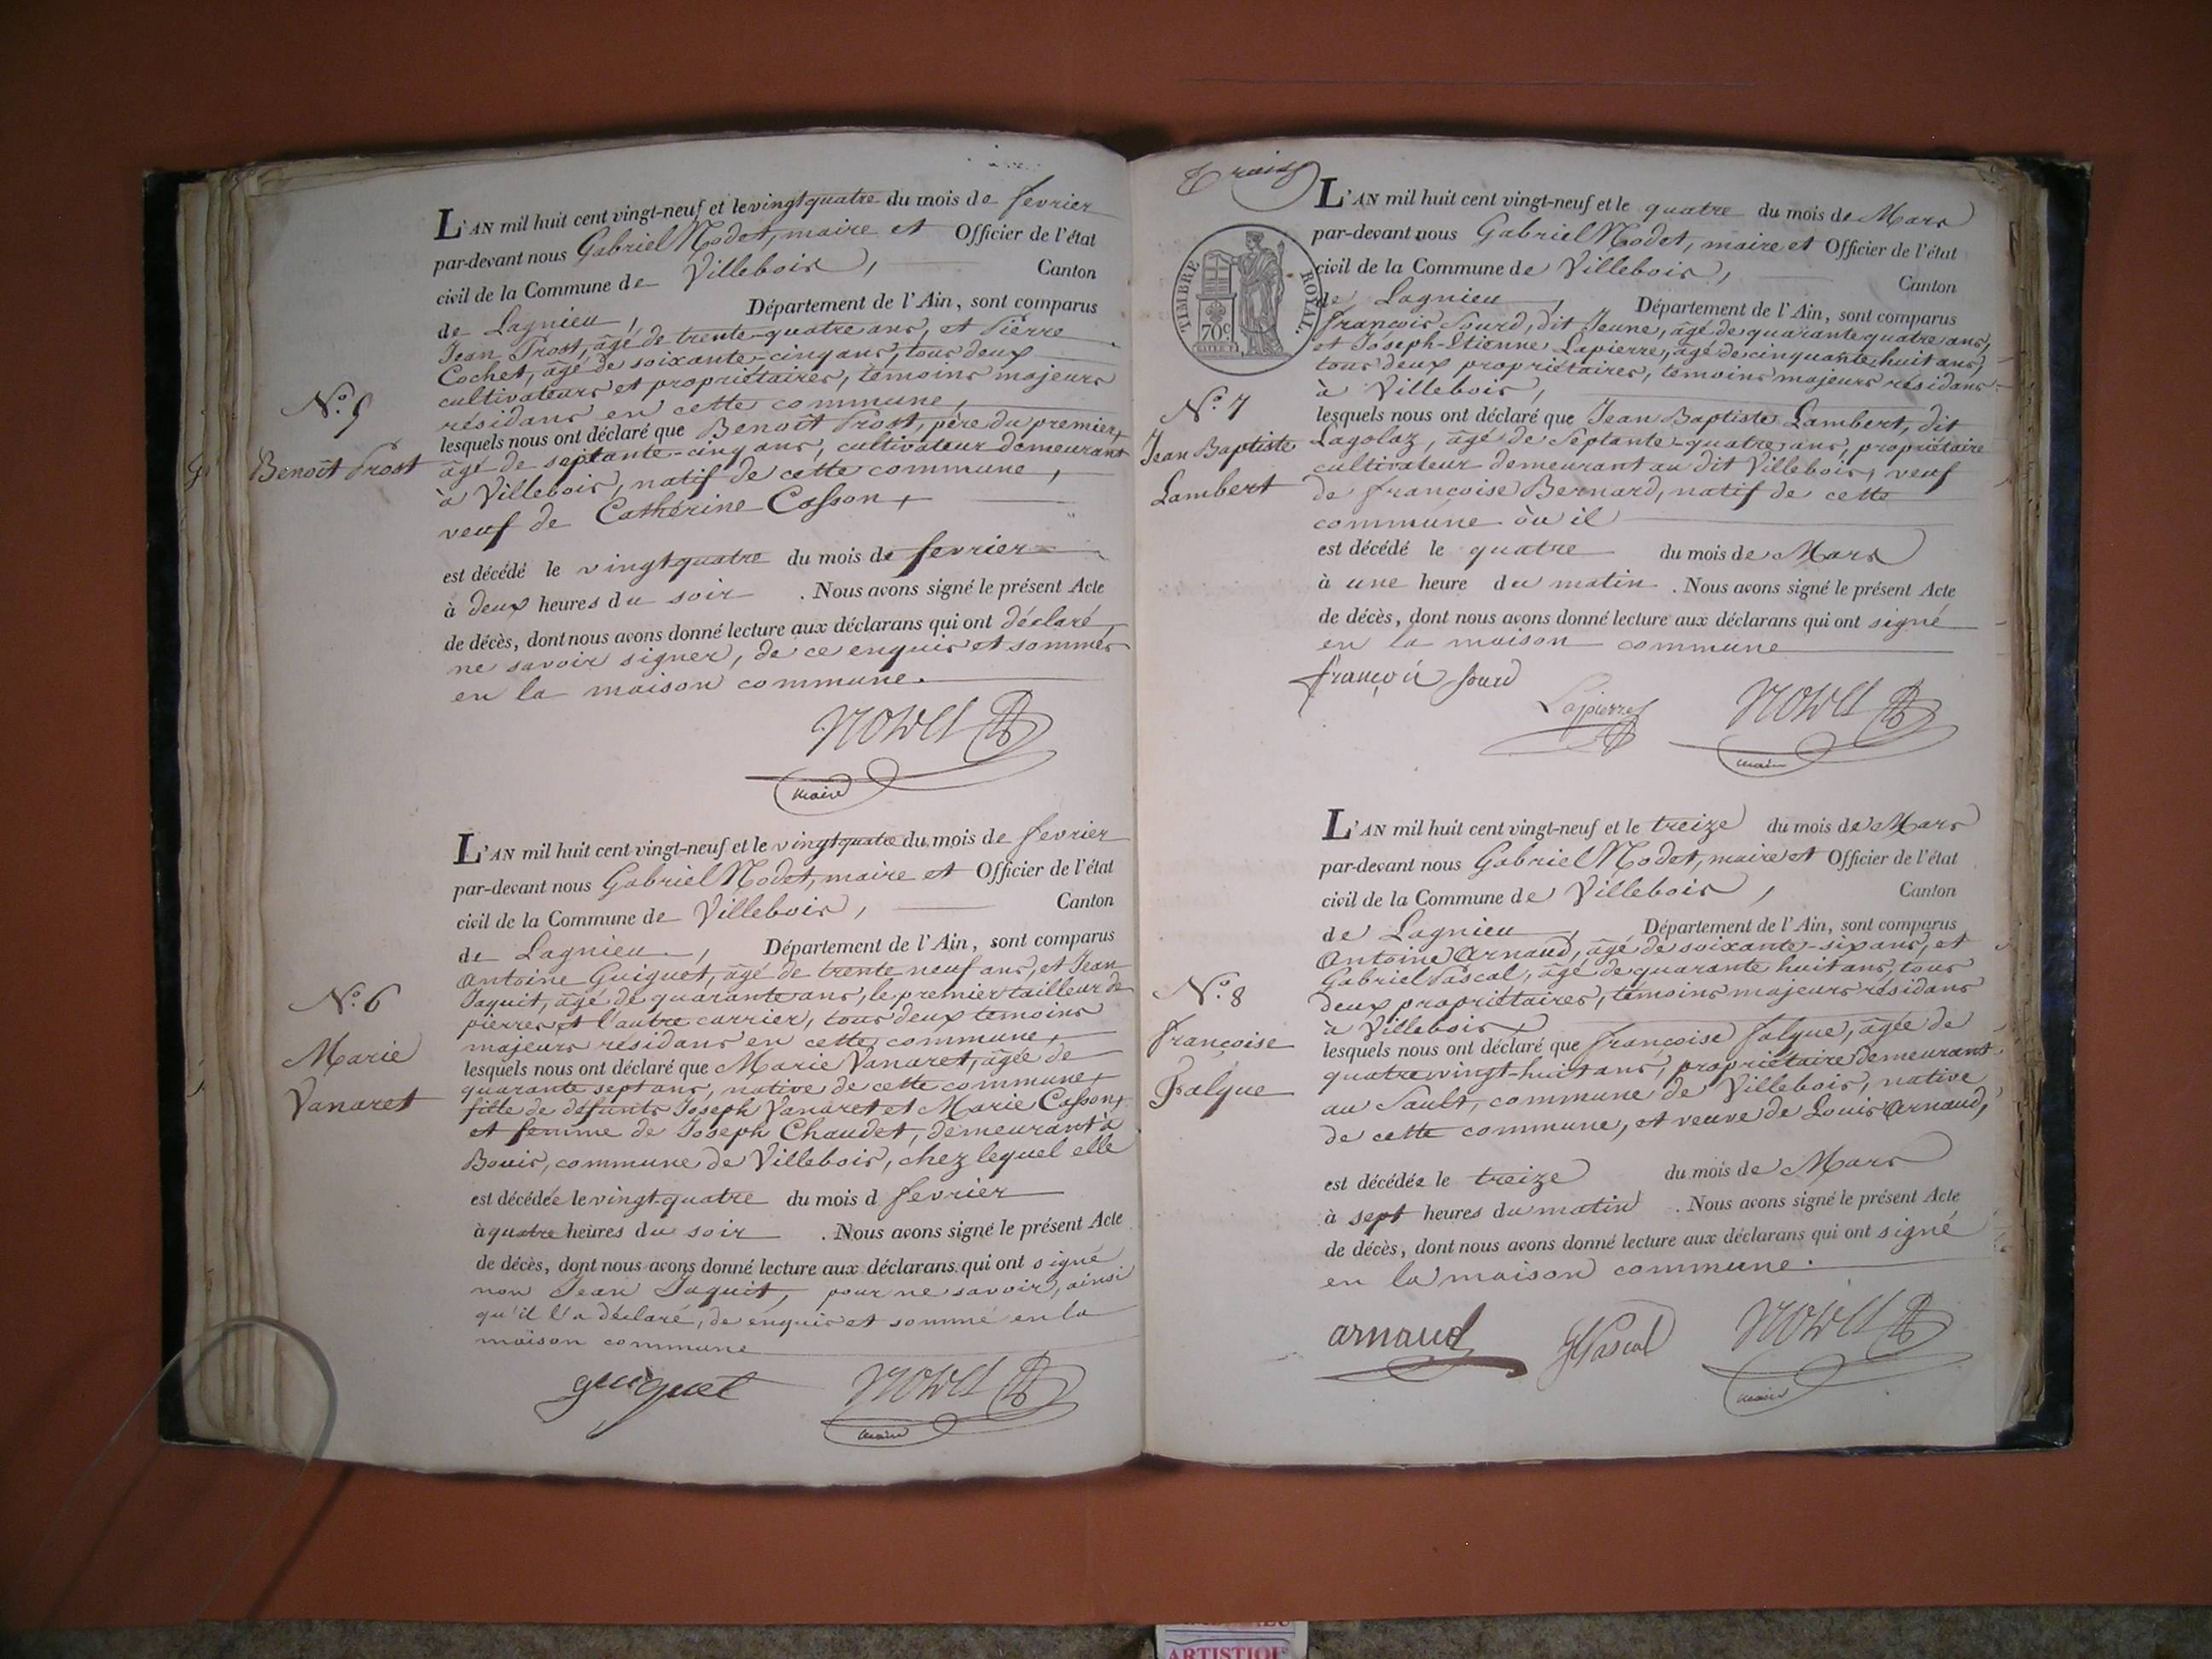 L'AN mil huit cent vingt-neuf et le vingt quatre du mois de fevrier
par-devant nous Gabriel Nodet, maire et Officier de l'état
civil de la Commune de Villebois, Canton
de Lagnieu, Département de l'Ain, sont comparus
Jean Prost, âgé de trente-quatre ans, et Pierre
Cochet, âgé de soixante-cinq ans, tous deux
cultivateurs et propriétaires, témoins majeurs
résidans en cette commune,
N.° 5
Benoît Prost
lesquels nous ont déclaré que Benoît Prost, père du premier,
âgé de septante-cinq ans, cultivateur demeurant
à Villebois, natif de cette commune,
veuf de Cathérine Casson,
est décédé le vingt quatre du mois de fevrier
à deux heures du soir . Nous avons signé le présent Acte
de décès, dont nous avons donné lecture aux déclarans qui ont déclaré
ne savoir signer, de ce enquis et sommés
en la maison commune.
Nodet
maire
L'AN mil huit cent vingt-neuf et le vingt quatre du mois de fevrier
par-devant nous Gabriel Nodet, maire et Officier de l'état
civil de la Commune de Villebois, Canton
de Lagnieu, Département de l'Ain, sont comparus
Antoine Guiguet, âgé de trente neuf ans, et Jean
Jaquit, âgé de quarante ans, le premier tailleur de
pierres et l'autre carrier, tous deux temoins
majeurs résidans en cette commune,
N.° 6
Marie
Vanaret
lesquels nous ont déclaré que Marie Vanaret, âgée de
quarante sept ans, native de cette commune,
fille de défunts Joseph Vanaret et Marie Casson,
et femme de Joseph Chaudet, demeurant à
Bouis, commune de Villebois, chez lequel elle
est décédée le vingt-quatre du mois d fevrier
à quatre heures du soir . Nous avons signé le présent Acte
de décès, dont nous avons donné lecture aux déclarans qui ont signé
non Jean Jaquit, pour ne savoir, ainsi
qu'il l'a déclaré, de enquis et sommé en la
maison commune
guiguet Nodet
maire
Trois
TIMBRE ROYAL.
70c
L'AN mil huit cent vingt-neuf et le quatre du mois de Mars
par-devant nous Gabriel Nodet, maire et Officier de l'état
civil de la Commune de Villebois, Canton
de Lagnieu, Département de l'Ain, sont comparus
françois Sourd, dit Jeune, âgé de quarante quatre ans,
et Joseph-Etienne Lapierre, âgé de cinquante huit ans,
tous deux propriétaires, témoins majeurs résidans
à Villebois,
N.° 7
Jean Baptiste
Lambert
lesquels nous ont déclaré que Jean Baptiste Lambert, dit
Lagolaz, âgé de Septante-quatre ans, propriétaire
cultivateur demeurant au dit Villebois, veuf
de françoise Bernard, natif de cette
commune où il
est décédé le quatre du mois de Mars
à une heure du matin . Nous avons signé le présent Acte
de décès, dont nous avons donné lecture aux déclarans qui ont signé
en la maison commune
françois sourd
Lapierre Nodet
maire
L'AN mil huit cent vingt-neuf et le treize du mois de Mars
par-devant nous Gabriel Nodet, maire et Officier de l'état
civil de la Commune de Villebois, Canton
de Lagnieu, Département de l'Ain, sont comparus
Antoine Arnaud, âgé de soixante-six ans, et
Gabriel Pascal, âgé de quarante huit ans, tous
deux propriétaires, témoins majeurs résidans
à Villebois,
N.° 8
françoise
Falque
lesquels nous ont déclaré que françoise falque, âgée de
quatre vingt-huit ans, propriétaire demeurant
au Sault, commune de Villebois, native
de cette commune, et veuve de Louis Arnaud,
est décédée le treize du mois de Mars
à sept heures du matin . Nous avons signé le présent Acte
de décès, dont nous avons donné lecture aux déclarans qui ont signé
en la maison commune.
arnaud GPascal Nodet
maire
ARTISTIQUE